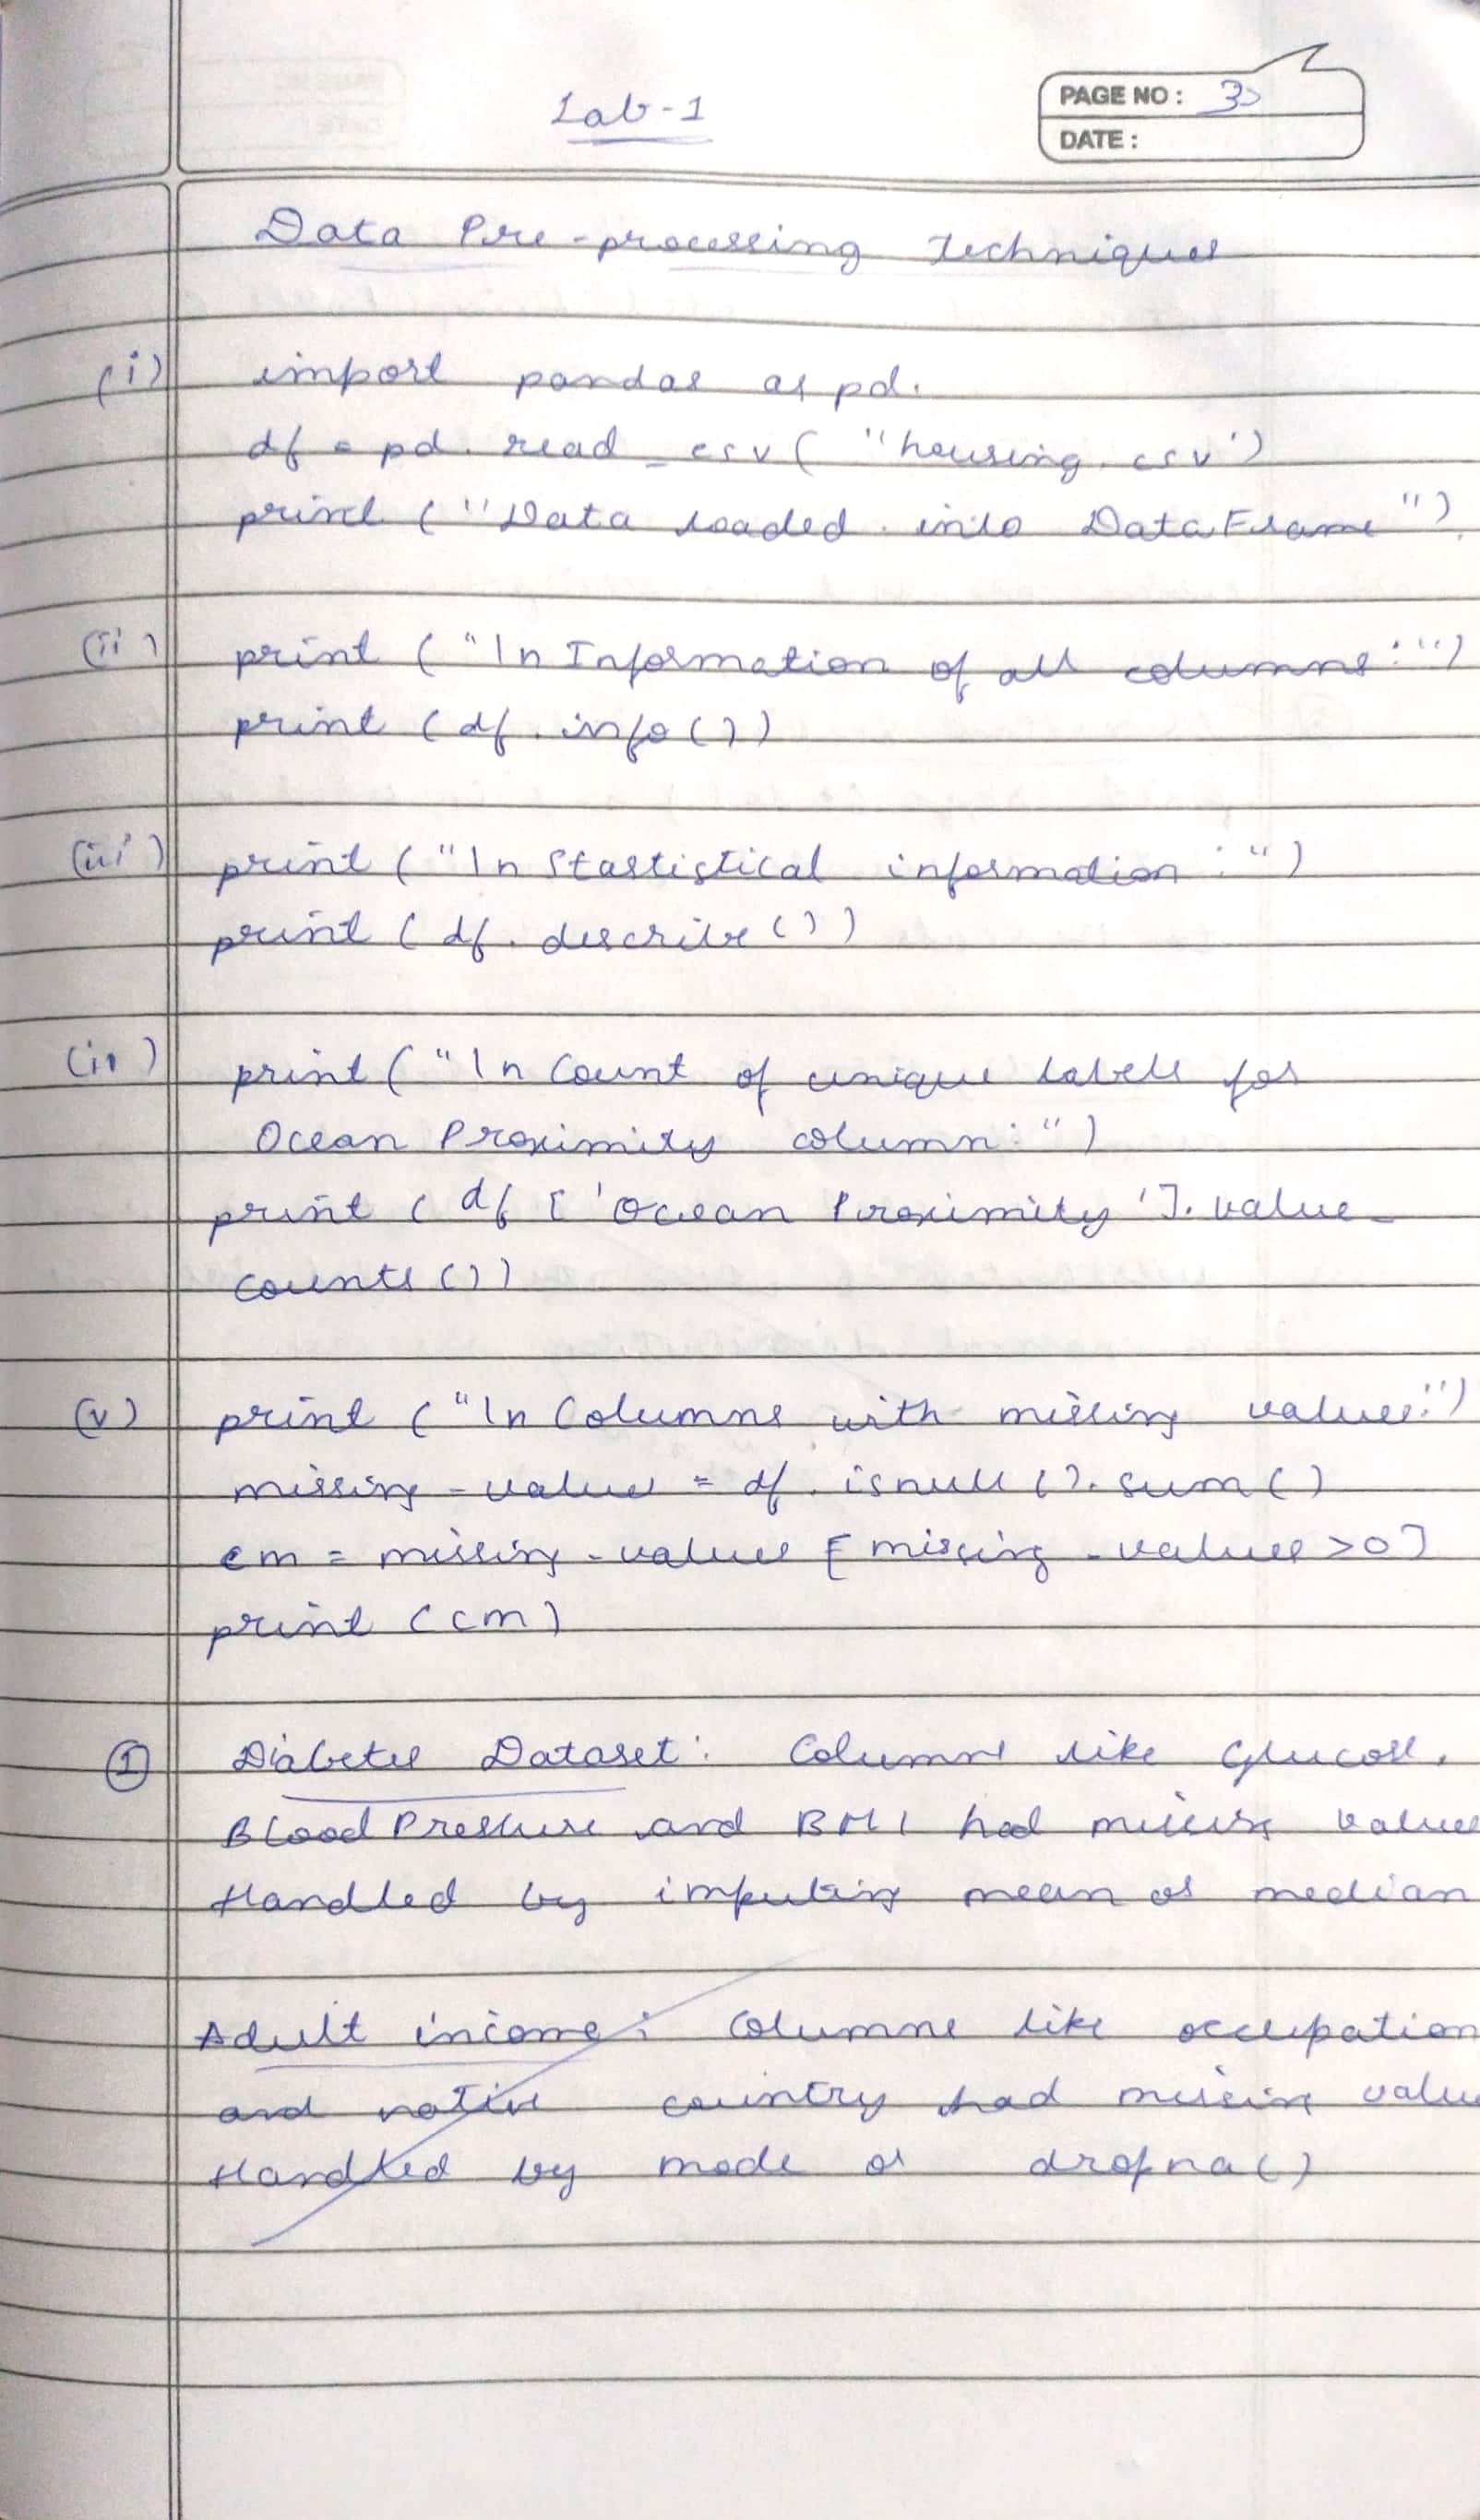 Lab-1
PAGE NO: 3
DATE:
Data Pre-processing Techniques
(i) import pandas as pd.
df = pd. read_csv( "housing.csv')
print ("Data loaded into DataFrame")
(ii) print ("\n Information of all columns:")
print (df.info())
(iii) print ("\n Stastistical information:")
print (df.describe())
(iv) print ("\n Count of unique labels for
Ocean Proximity column:")
print (df['Ocean Proximity'].value_
counts())
(v) print ("\n Columns with missing values:")
missing-values = df.isnull().sum()
cm = missing-values [missing-values>0]
print (cm)
① Diabetes Dataset: Columns like Glucose,
Blood Pressure and BMI had missing values
Handled by imputing mean or median
Adult income: Columns like occupation
and native country had missing value
Handled by mode or dropna()